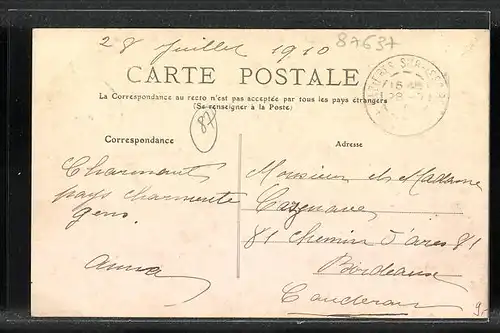 28 Juillet 1910
87637
CARTE POSTALE
La Correspondance au recto n'est pas acceptée par tous les pays étrangers
(Se renseigner à la Poste)
87
Correspondance
Adresse
Charmant
pays charmente
gens.
Anna
Monsieur et Madame
Cazenave
81 chemin d'ares 81
Bordeaux
Cauderan
9,-